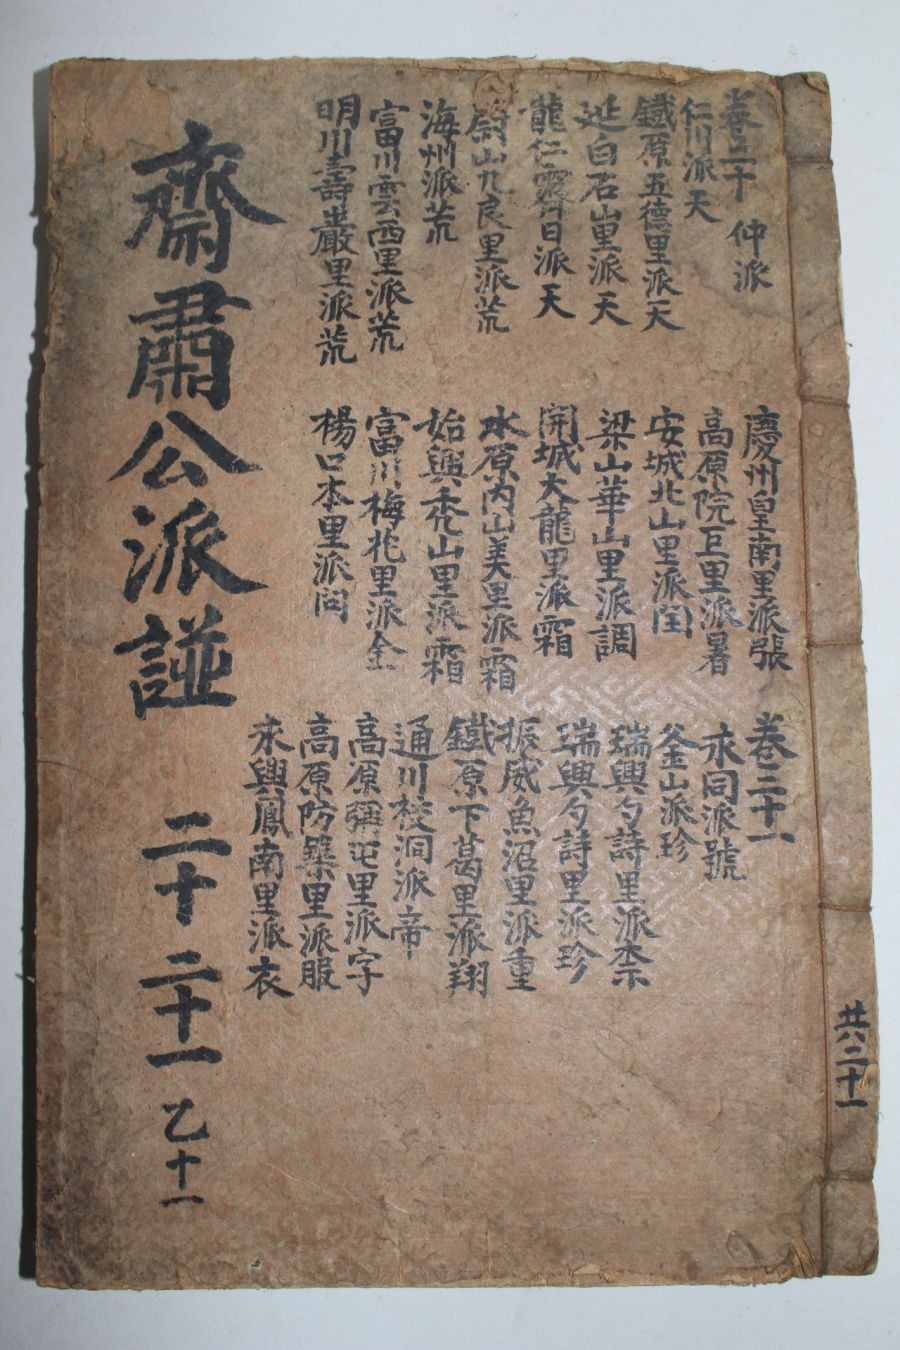 卷二十 仲派
仁川派天
鐵原五德里派天
延白石山里派天
龍仁霽日派天
蔚山九良里派荒
海州派荒
富川雲西里派荒
明川壽嚴里派荒
慶州皇南里派張
高原院巨里派暑
安城北山里派閏
梁山華山里派調
開城大龍里派霜
水原內山美里派霜
始興禿山里派霜
富川梅花里派金
楊口本里派問
卷二十一
永同派號
釜山派珍
瑞興勺詩里派柰
瑞興勺詩里派珍
振威魚沼里派重
鐵原下葛里派翔
通川校洞派帝
高原彌屯里派字
高原防築里派服
永興鳳南里派衣
齋肅公派譜 二十 二十一 乙十一
共二十一